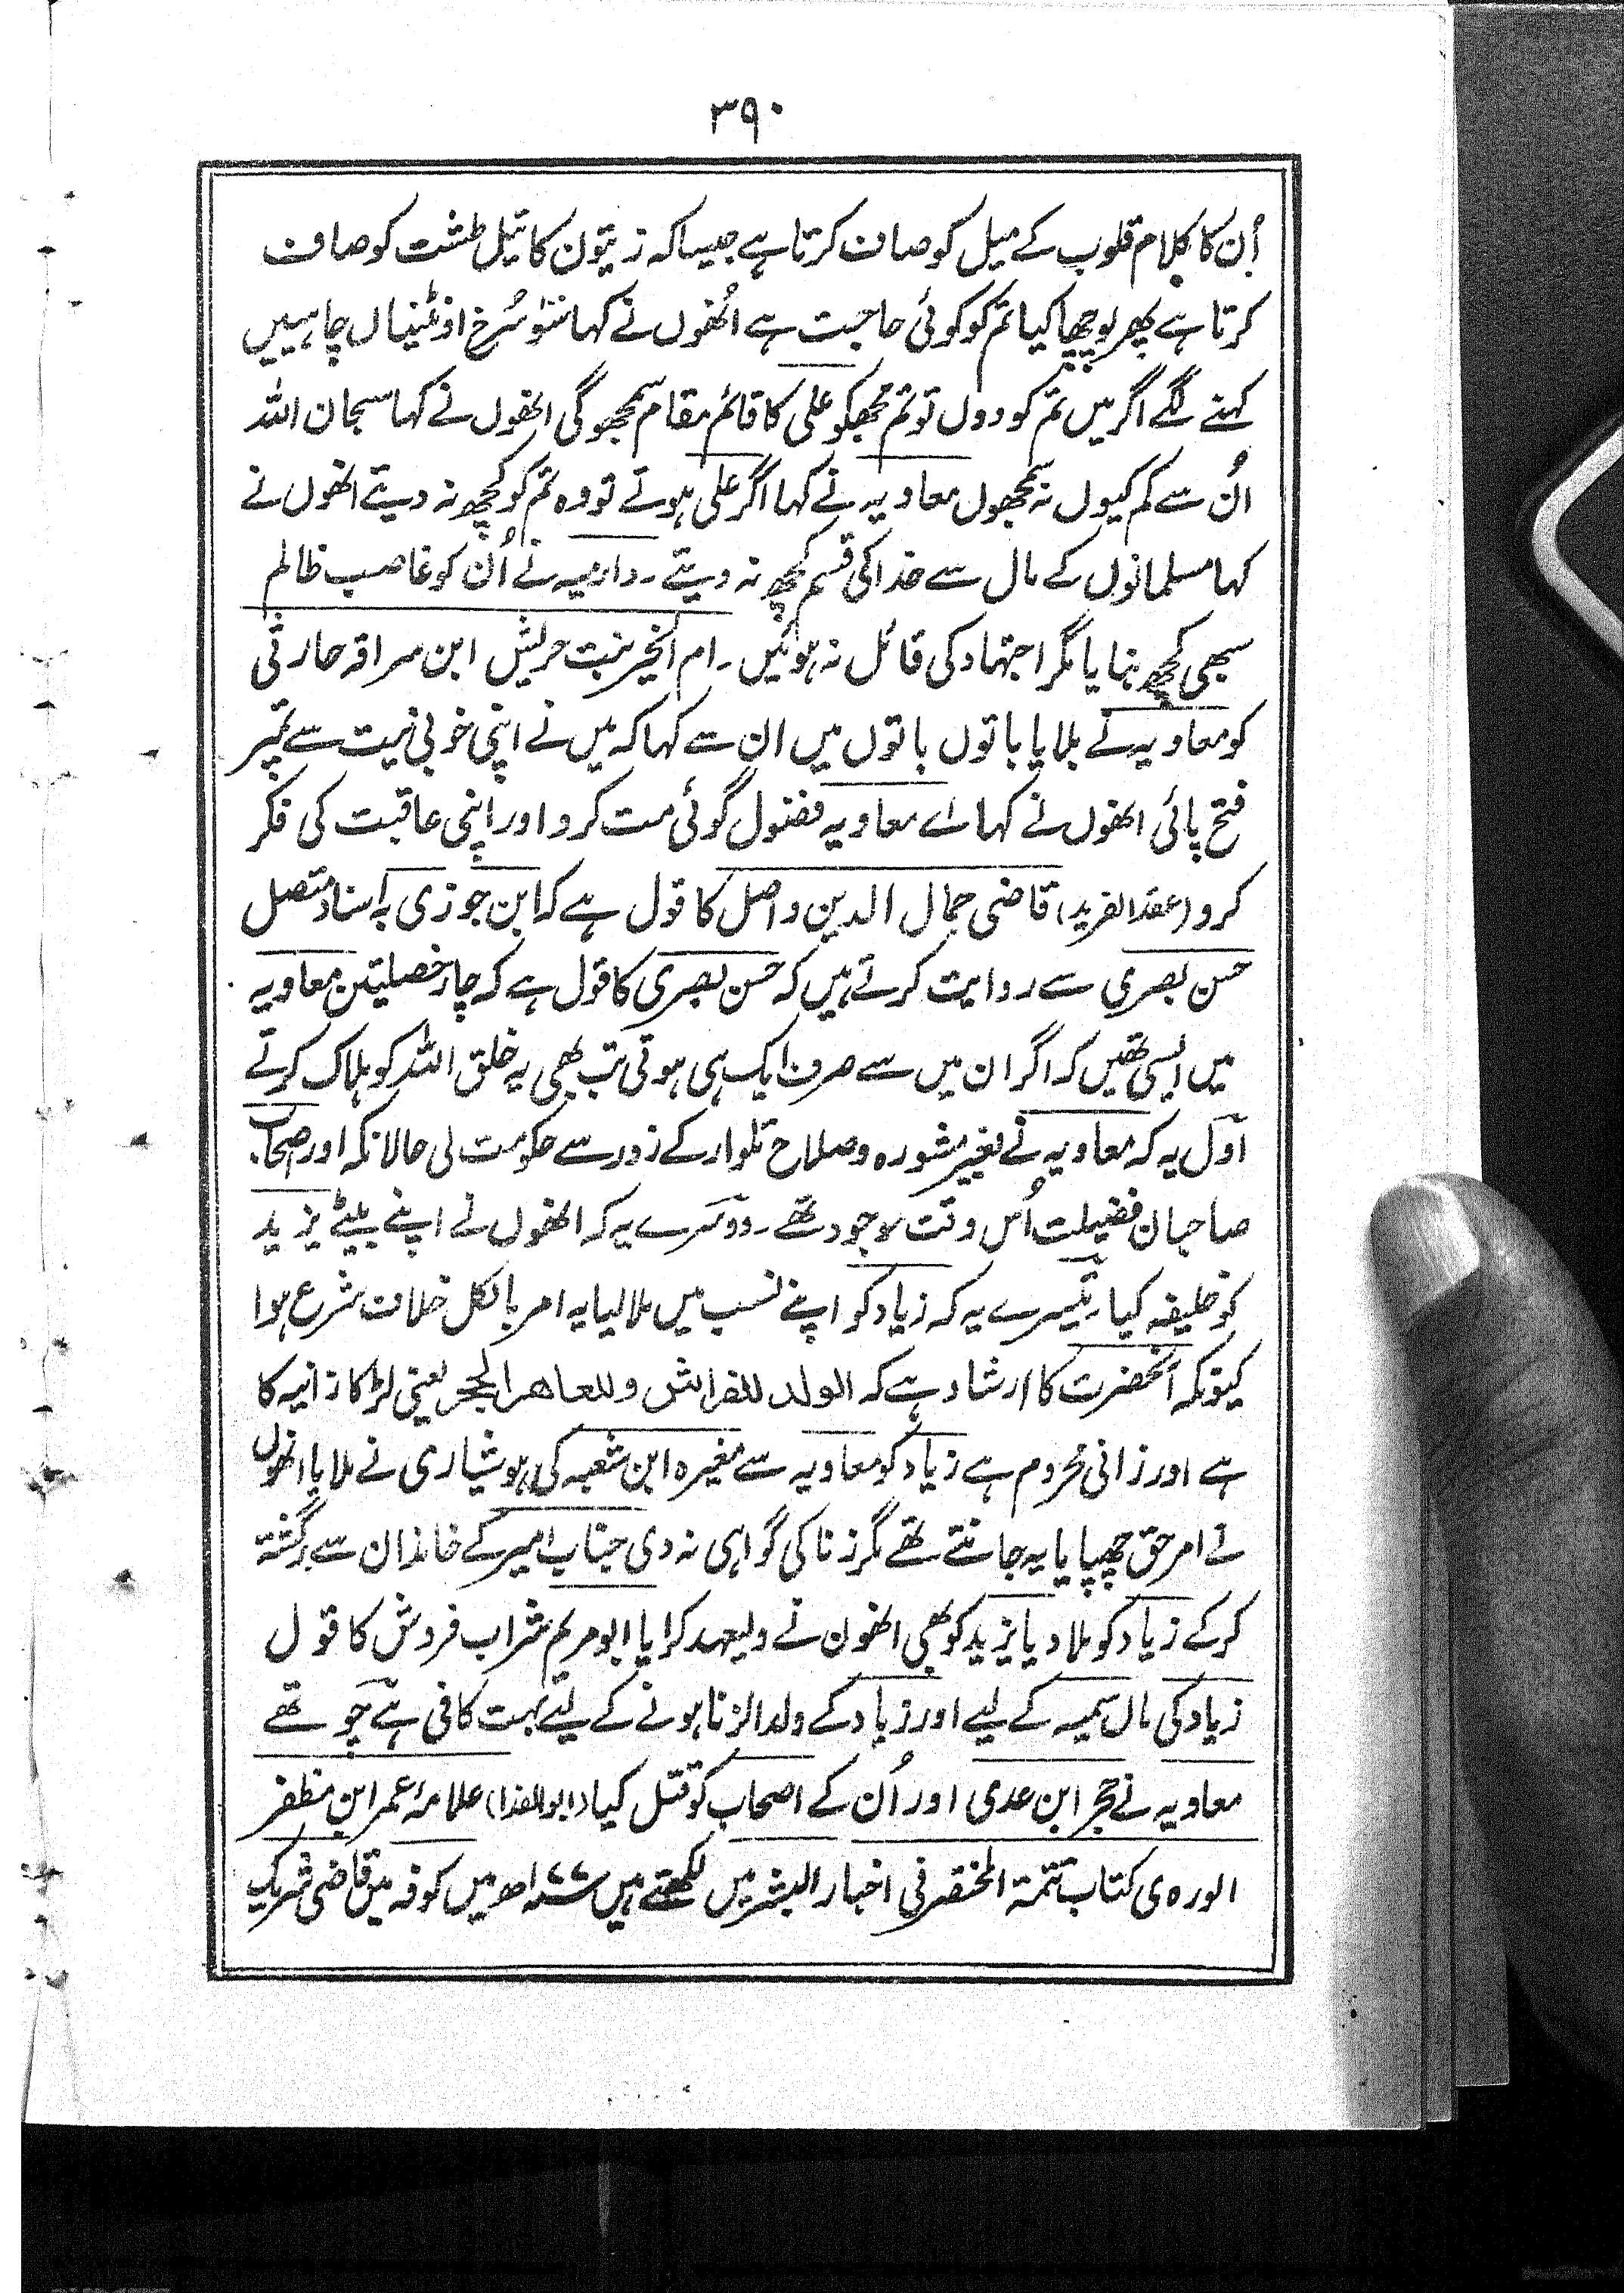 ۳۹۰
اُن کا کلام قلوب کے میل کو صاف کرتا ہے جیسا کہ زیتون کا تیل طشت کو صاف
کرتا ہے پھر پوچھا کیا تم کو کوئی حاجت ہے اُنھوں نے کہا سَو سُرخ اونٹنیاں چاہییں
کہنے لگے اگر میں تم کو دوں تو تم مجھکو علی کا قائم مقام سمجھو گی انھوں نے کہا سبحان اللہ
اُن سے کم کیوں نہ سمجھوں معاویہ نے کہا اگر علی ہوتے تو وہ تم کو کچھ نہ دیتے انھوں نے
کہا مسلمانوں کے مال سے خدا کی قسم کچھ نہ دیتے ۔ دارمیہ نے اُن کو غاصب ظالم
سبھی کچھ بنایا مگر اجتہاد کی قائل نہ ہوئیں ۔ ام الخیر بنت حریش ابن سراقہ حارثی
کو معاویہ نے بلایا باتوں باتوں میں ان سے کہا کہ میں نے اپنی خوبی نیت سے تمپر
فتح پائی انھوں نے کہا اے معاویہ فضول گوئی مت کرو اور اپنی عاقبت کی فکر
کرو (عقد الفرید) قاضی جمال الدین واصل کا قول ہے کہ ابن جوزی بہ اسناد متصل
حسن بصری سے روایت کرتے ہیں کہ حسن بصری کا قول ہے کہ چار خصلیتں معاویہ
میں ایسی تھیں کہ اگر ان میں سے صرف ایک ہی ہوتی تب بھی یہ خلق اللہ کو ہلاک کرتے
اوّل یہ کہ معاویہ نے بغیر مشورہ و صلاح تلوار کے زور سے حکومت لی حالانکہ اور اصحاب
صاحبان فضیلت اُس وقت موجود تھے ۔ دوسرے یہ کہ انھوں نے اپنے بیٹے یزید
کو خلیفہ کیا ۔ تیسرے یہ کہ زیاد کو اپنے نسب میں ملا لیا یہ امر بالکل خلاف شرع ہوا
کیونکہ آنحضرت کا ارشاد ہے کہ الولد للفراش وللعاھر الحجر یعنی لڑکا زانیہ کا
ہے اور زانی محروم ہے زیاد کو معاویہ سے مغیرہ ابن شعبہ کی ہوشیاری نے ملایا انھوں
نے امر حق چھپایا یہ جانتے تھے مگر زنا کی گواہی نہ دی جناب امیر کے خاندان سے برگشتہ
کر کے زیاد کو ملا دیا یزید کو بھی انھون نے ولیعہد کرایا ابو مریم شراب فروش کا قول
زیاد کی ماں سمیہ کے لیے اور زیاد کے ولدالزنا ہونے کے لیے بہت کافی ہے چوتھے
معاویہ نے حجر ابن عدی اور اُن کے اصحاب کو قتل کیا (ابوالفدا) علامۂ عمر ابن مظفر
الوردی کتاب تتمۃ المختصر فی اخبار البشر میں لکھتے ہیں میں کوفہ میں قاضی شریک